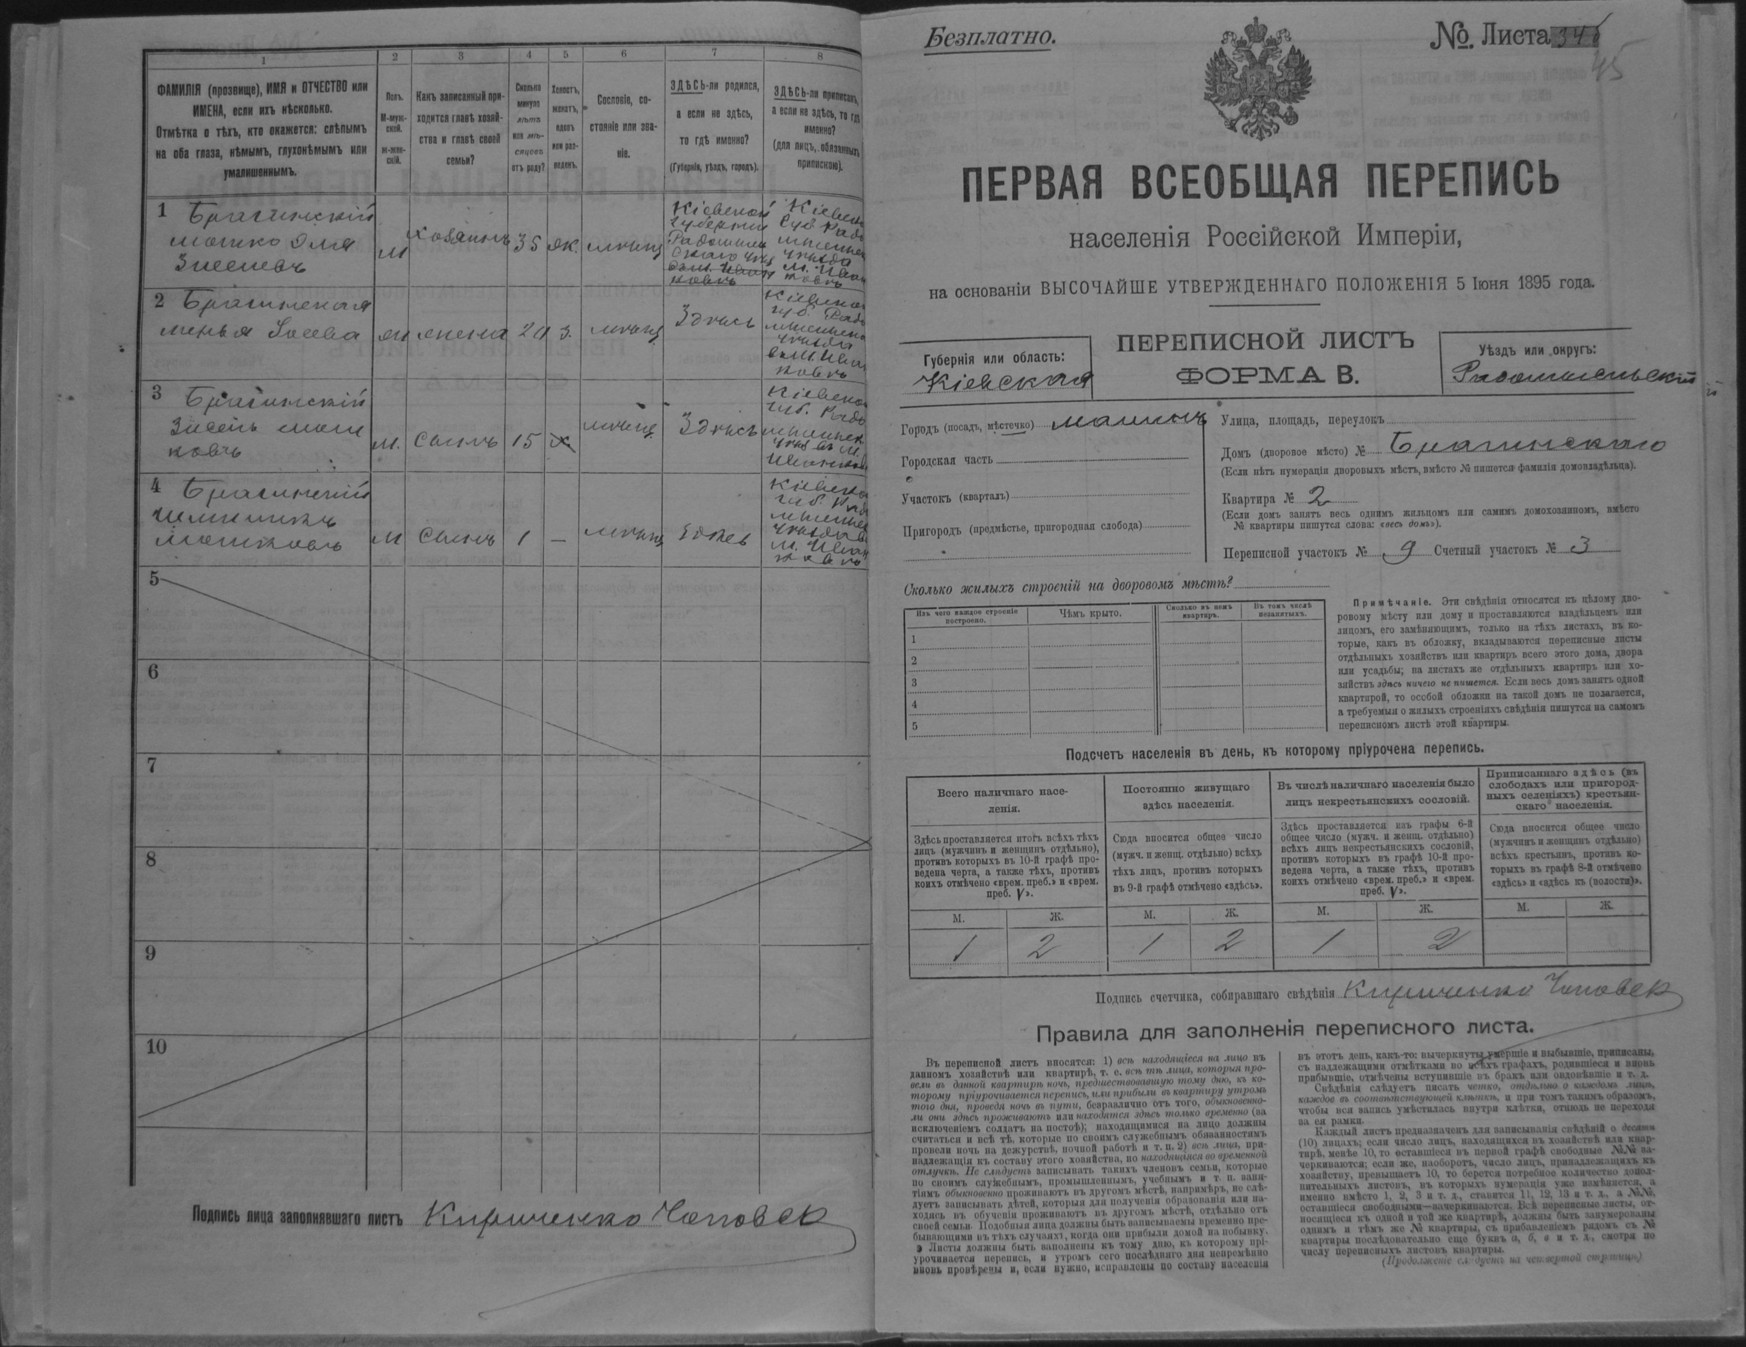 1 2 3 4 5 6 7 8
ФАМИЛІЯ (прозвище), ИМЯ и ОТЧЕСТВО или
ИМЕНА, если ихъ нѣсколько.
Отмѣтка о тѣхъ, кто окажется: слѣпымъ
на оба глаза, нѣмымъ, глухонѣмымъ или
умалишеннымъ.
Полъ.
М-муж-
ской.
ж-жен-
скій.
Какъ записанный при-
ходится главѣ хозяй-
ства и главѣ своей
семьи?
Сколько
минуло
лѣтъ
или мѣ-
сяцевъ
отъ роду?
Холостъ,
женатъ,
вдовъ
или раз-
веденъ.
Сословіе, со-
стояніе или зва-
ніе.
ЗДѢСЬ-ли родился,
а если не здѣсь,
то гдѣ именно?
(Губернія, уѣздъ, городъ).
ЗДѢСЬ-ли приписанъ,
а если не здѣсь, то гдѣ
именно?
(для лицъ, обязанныхъ
припискою).
1 Брагинскій
Мошко
М хозяинъ 35 жк. мѣщ
Кіевской
губерніи
2 Брагинская
жена 3. мѣщ Здѣсь
3 Брагинскій
М. сынъ 15 х мѣщ Здѣсь
4 Брагинскій
Мошковъ
М сынъ 1 — мѣщ
5
6
7
8
9
10
Подпись лица заполнявшаго листъ Кириченко
Безплатно.
№ Листа 345
45
ПЕРВАЯ ВСЕОБЩАЯ ПЕРЕПИСЬ
населенія Россійской Имперіи,
на основаніи ВЫСОЧАЙШЕ УТВЕРЖДЕННАГО ПОЛОЖЕНІЯ 5 Іюня 1895 года.
Губернія или область:
Кіевская
ПЕРЕПИСНОЙ ЛИСТЪ
ФОРМА В.
Уѣздъ или округъ:
Радомысльскій
Городъ (посадъ, мѣстечко) Малинъ
Городская часть
Участокъ (кварталъ)
Пригородъ (предмѣстье, пригородная слобода)
Улица, площадь, переулокъ
Домъ (дворовое мѣсто) № Брагинскаго
(Если нѣтъ нумераціи дворовыхъ мѣстъ, вмѣсто № пишется фамилія домовладѣльца).
Квартира № 2
(Если домъ занятъ весь однимъ жильцомъ или самимъ домохозяиномъ, вмѣсто
№ квартиры пишутся слова: «весь домъ»).
Переписной участокъ № 9 Счетный участокъ № 3
Сколько жилыхъ строеній на дворовомъ мѣстѣ?
Изъ чего каждое строеніе
построено.
Чѣмъ крыто.
Сколько въ немъ
квартиръ.
Въ томъ числѣ
незанятыхъ.
1
2
3
4
5
Примѣчаніе. Эти свѣдѣнія относятся къ цѣлому дво-
ровому мѣсту или дому и проставляются владѣльцемъ или
лицомъ, его замѣняющимъ, только на тѣхъ листахъ, въ ко-
торые, какъ въ обложку, вкладываются переписные листы
отдѣльныхъ хозяйствъ или квартиръ всего этого дома, двора
или усадьбы; на листахъ же отдѣльныхъ квартиръ или хо-
зяйствъ здѣсь ничего не пишется. Если весь домъ занятъ одной
квартирой, то особой обложки на такой домъ не полагается,
а требуемыя о жилыхъ строеніяхъ свѣдѣнія пишутся на самомъ
переписномъ листѣ этой квартиры.
Подсчетъ населенія въ день, къ которому пріурочена перепись.
Всего наличнаго насе-
ленія.
Здѣсь проставляется итогъ всѣхъ тѣхъ
лицъ (мужчинъ и женщинъ отдѣльно),
противъ которыхъ въ 10-й графѣ про-
ведена черта, а также тѣхъ, противъ
коихъ отмѣчено «врем. преб.» и «врем.
преб. V».
Постоянно живущаго
здѣсь населенія.
Сюда вносится общее число
(мужч. и женщ. отдѣльно) всѣхъ
тѣхъ лицъ, противъ которыхъ
въ 9-й графѣ отмѣчено «здѣсь».
Въ числѣ наличнаго населенія было
лицъ некрестьянскихъ сословій.
Здѣсь проставляется изъ графы 6-й
общее число (мужч. и женщ. отдѣльно)
всѣхъ лицъ некрестьянскихъ сословій,
противъ которыхъ въ графѣ 10-й про-
ведена черта, а также тѣхъ, противъ
коихъ отмѣчено «врем. преб.» и «врем.
преб. V».
Приписаннаго здѣсь (въ
слободахъ или пригород-
ныхъ селеніяхъ) крестьян-
скаго населенія.
Сюда вносится общее число
(мужчинъ и женщинъ отдѣльно)
всѣхъ крестьянъ, противъ ко-
торыхъ въ графѣ 8-й отмѣчено
«здѣсь» и «здѣсь къ (волости)».
М. Ж. М. Ж. М. Ж. М. Ж.
1 2 1 2 1 2
Подпись счетчика, собиравшаго свѣдѣнія Кириченко
Правила для заполненія переписного листа.
Въ переписной листъ вносятся: 1) всѣ находящіеся на лицо въ
данномъ хозяйствѣ или квартирѣ, т. е. всѣ тѣ лица, которыя про-
вели въ данной квартирѣ ночь, предшествовавшую тому дню, къ ко-
торому пріурочивается перепись, или прибыли въ квартиру утромъ
того дня, проведя ночь въ пути, безразлично отъ того, обыкновенно-
ли они здѣсь проживаютъ или находятся здѣсь только временно (за
исключеніемъ солдатъ на постоѣ); находящимися на лицо должны
считаться и всѣ тѣ, которые по своимъ служебнымъ обязанностямъ
провели ночь на дежурствѣ, ночной работѣ и т. п. 2) всѣ лица, при-
надлежащія къ составу этого хозяйства, но находящіяся во временной
отлучкѣ. Не слѣдуетъ записывать такихъ членовъ семьи, которые
по своимъ служебнымъ, промышленнымъ, учебнымъ и т. п. заня-
тіямъ обыкновенно проживаютъ въ другомъ мѣстѣ, напримѣръ, не слѣ-
дуетъ записывать дѣтей, которыя для полученія образованія или на-
ходясь въ обученіи проживаютъ въ другомъ мѣстѣ, отдѣльно отъ
своей семьи. Подобныя лица должны быть записываемы временно пре-
бывающими въ тѣхъ случаяхъ, когда они прибыли домой на побывку.
Листы должны быть заполнены къ тому дню, къ которому прі-
урочивается перепись, и утромъ сего послѣдняго дня непремѣнно
вновь провѣрены и, если нужно, исправлены по составу населенія
въ этотъ день, какъ-то: вычеркнуты умершіе и выбывшіе, приписаны,
съ надлежащими отмѣтками во всѣхъ графахъ, родившіеся и вновь
прибывшіе, отмѣчены вступившіе въ бракъ или овдовѣвшіе и т. д.
Свѣдѣнія слѣдуетъ писать четко, отдѣльно о каждомъ лицѣ,
каждое въ соотвѣтствующей клѣткѣ, и при томъ такимъ образомъ,
чтобы вся запись умѣстилась внутри клѣтки, отнюдь не переходя
за ея рамки.
Каждый листъ предназначенъ для записыванія свѣдѣній о десяти
(10) лицахъ; если число лицъ, находящихся въ хозяйствѣ или квар-
тирѣ, менѣе 10, то оставшіеся въ первой графѣ свободные №№ за-
черкиваются; если же, наоборотъ, число лицъ, принадлежащихъ къ
хозяйству, превышаетъ 10, то берется потребное количество допол-
нительныхъ листовъ, въ которыхъ нумерація уже измѣняется, а
именно вмѣсто 1, 2, 3 и т. д., ставится 11, 12, 13 и т. д., а №№,
оставшіеся свободными—зачеркиваются. Всѣ переписные листы, от-
носящіеся къ одной и той же квартирѣ, должны быть занумерованы
однимъ и тѣмъ же № квартиры, съ прибавленіемъ рядомъ съ №
квартиры послѣдовательно еще буквъ а, б, в и т. д., смотря по
числу переписныхъ листовъ квартиры.
(Продолженіе слѣдуетъ на четвертой страницѣ)